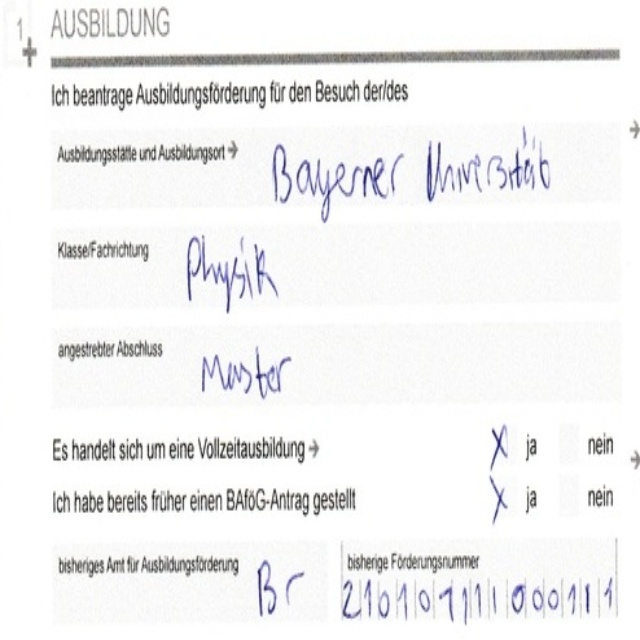 1 AUSBILDUNG
Ich beantrage Ausbildungsförderung für den Besuch der/des
Ausbildungsstätte und Ausbildungsort → Bayerner Universität
Klasse/Fachrichtung Physik
angestrebter Abschluss Master
Es handelt sich um eine Vollzeitausbildung → X ja nein
Ich habe bereits früher einen BAföG-Antrag gestellt X ja nein
bisheriges Amt für Ausbildungsförderung Br
bisherige Förderungsnummer